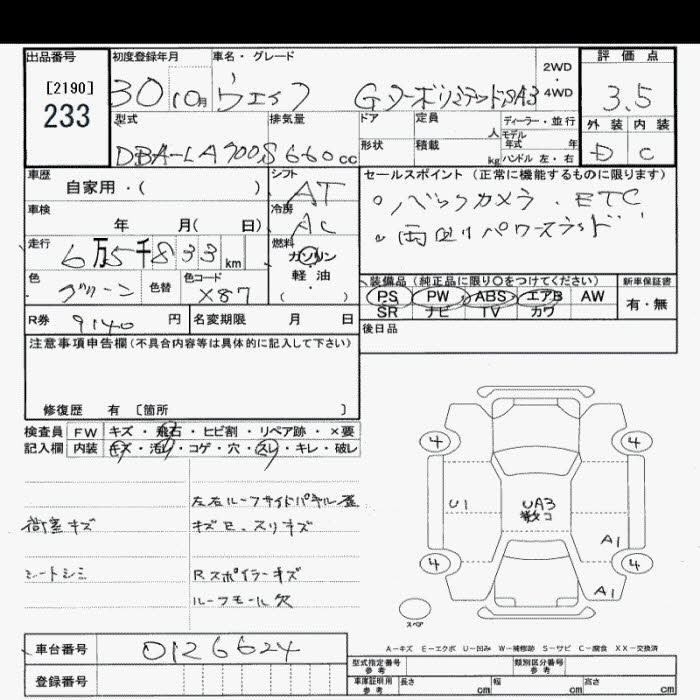 出品番号 初度登録年月 車名・グレード 評価点
[2190]
233
30 10月 ウェイク Gターボリミテッド SAⅢ
2WD
・
4WD
3.5
型式 排気量 ドア 定員 人 ディーラー・並行 外装 内装
モデル年式 年
DBA-LA700S 660cc 形状 積載 kg ハンドル 左・右 D C
車歴 シフト セールスポイント (正常に機能するものに限ります)
自家用・( ) AT
。バックカメラ . ETC
車検 冷房
年 月( 日) AC
。両側パワースライド
走行 燃料
6万5千833km ガソリン
軽・油
( )
色 色替 色コード
グリーン X87
装備品(純正品に限り○をつけてください) 新車保証書
PS PW ABS エアB AW 有・無
SR ナビ TV カワ
R券 9140 円 名変期限 月 日
後日品
注意事項申告欄(不具合内容等は具体的に記入して下さい)
修復歴 有 〔箇所 〕
検査員 FW キズ・飛石・ヒビ割・リペア跡・×要
記入欄 内装 キズ・汚レ・コゲ・穴・スレ・キレ・破レ
左右ルーフサイドパネル歪
荷室キズ キズE.スリキズ
シートシミ Rスポイラーキズ
ルーフモール欠
4 4
U1 UA3
数コ
A1
4 4
A1
スペア
A-キズ E-エクボ U-凹み W-補修跡 S-サビ C-腐食 XX-交換済
車台番号 0126624
登録番号
型式指定番号 参考 類別区分番号 参考
車庫証明用 参考 長さ cm 幅 cm 高さ cm